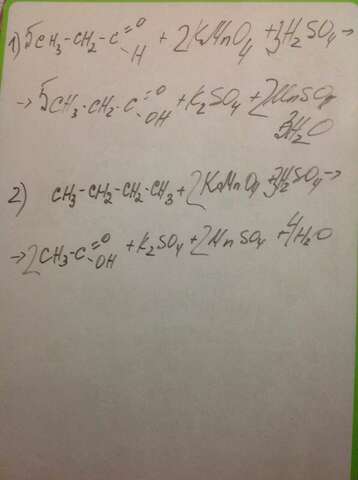 1) 5CH₃-CH₂-C=O-H + 2KMnO₄ + 3H₂SO₄ →
→ 5CH₃-CH₂-C=O-OH + K₂SO₄ + 2MnSO₄
3H₂O
2) CH₃-CH₂-CH₂-CH₃ + 2KMnO₄ + 3H₂SO₄ →
→ 2CH₃-C=O-OH + K₂SO₄ + 2MnSO₄ + 4H₂O